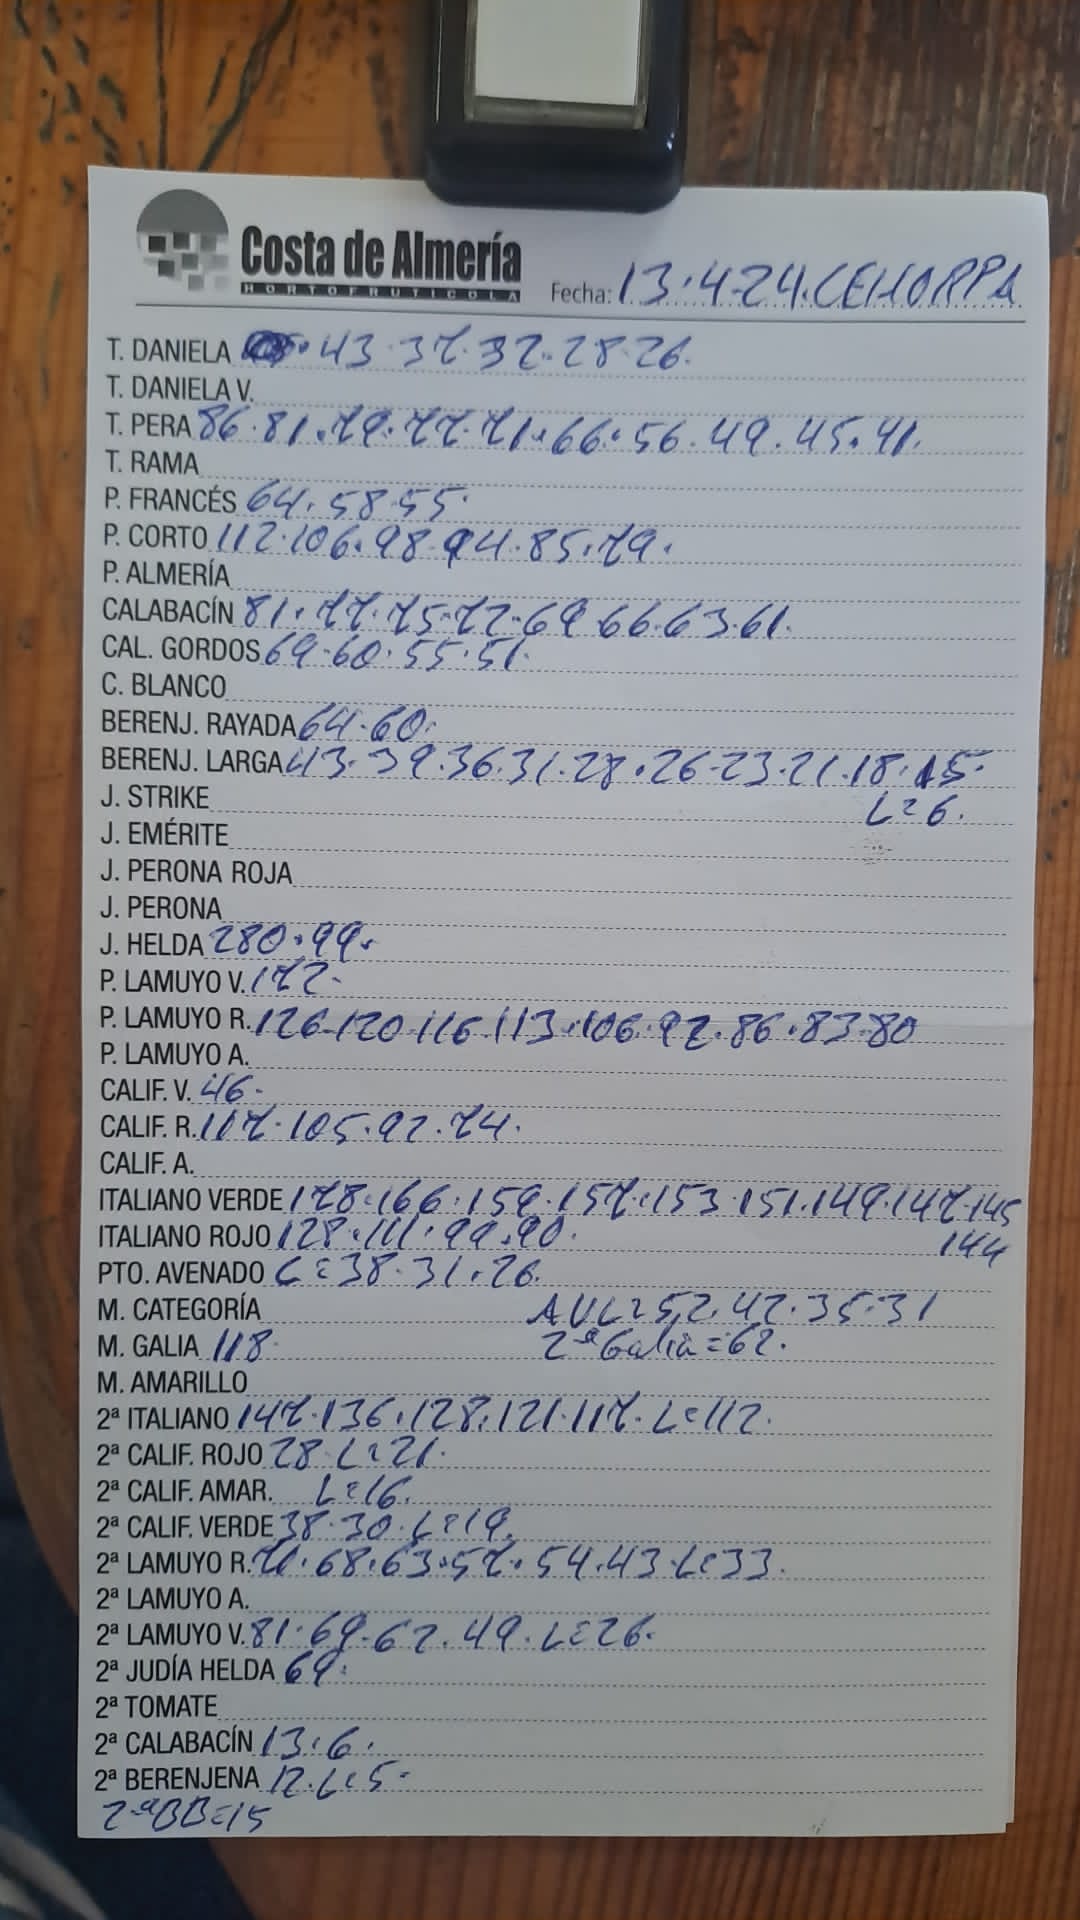 Costa de Almería
HORTOFRUTICOLA
Fecha: 13.4.24. CEHORPA
T. DANIELA 43.37.32.28.26.
T. DANIELA V.
T. PERA 86.81.79.77.71.66.56.49.45.41.
T. RAMA
P. FRANCÉS 64.58.55.
P. CORTO 112.106.98.94.85.79.
P. ALMERÍA
CALABACÍN 81.77.75.72.69.66.63.61.
CAL. GORDOS 69.60.55.51.
C. BLANCO
BERENJ. RAYADA 64.60.
BERENJ. LARGA 43.39.36.31.28.26.23.21.18.15.
J. STRIKE L=6.
J. EMÉRITE
J. PERONA ROJA
J. PERONA
J. HELDA 280.99.
P. LAMUYO V. 172.
P. LAMUYO R. 126.120.116.113.106.92.86.83.80
P. LAMUYO A.
CALIF. V. 46.
CALIF. R. 117.105.92.74.
CALIF. A.
ITALIANO VERDE 178.166.159.157.153.151.149.147.145
ITALIANO ROJO 128.111.99.90. 144
PTO. AVENADO L=38.31.26.
M. CATEGORÍA AVL=52.42.35.31
M. GALIA 118 2ª Galia=62.
M. AMARILLO
2ª ITALIANO 147.136.128.121.117. L=112.
2ª CALIF. ROJO 28. L=21.
2ª CALIF. AMAR. L=16.
2ª CALIF. VERDE 38.30. L=19.
2ª LAMUYO R. 71.68.63.57.54.43 L=33.
2ª LAMUYO A.
2ª LAMUYO V. 81.69.62.49. L=26.
2ª JUDÍA HELDA 69.
2ª TOMATE
2ª CALABACÍN 13.6.
2ª BERENJENA 12. L=5.
2ªBB=15